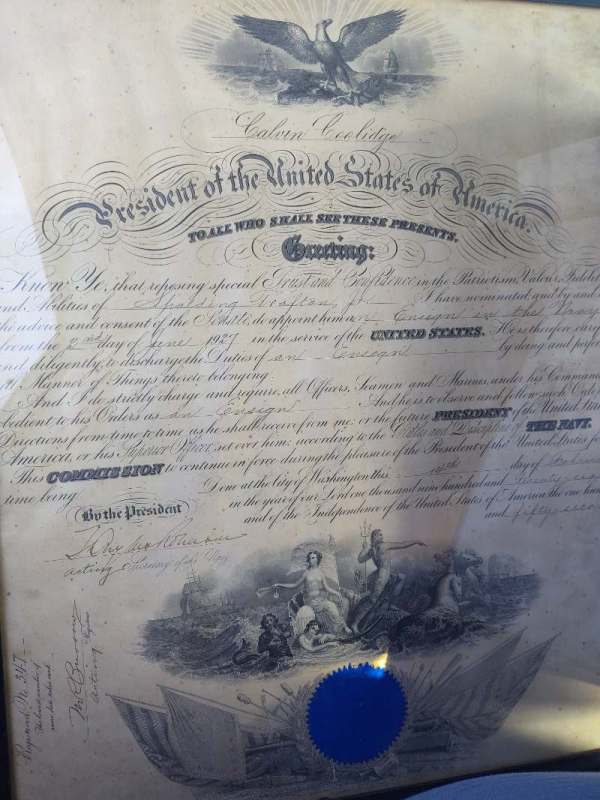 Calvin Coolidge
President of the United States of America.
TO ALL WHO SHALL SEE THESE PRESENTS,
Greeting:
Know Ye, that, reposing special Trust and Confidence in the Patriotism, Valour,
and Abilities of Jr. I have nominated, and by and
the advice and consent of the Senate, do appoint him an Ensign in the Navy
from the 2nd day of June 1927 in the service of the UNITED STATES. He is therefore
and diligently, to discharge the Duties of an Ensign by doing and
Manner of Things thereto belonging.
And I do strictly charge and require, all Officers, Seamen and Marines, under his
obedient to his Orders as an Ensign And he is to observe and follow, such
Directions, from time to time, as he shall receive from me, or the future PRESIDENT of the United
America, or his Superior Officer, set over him, according to the Rules and Discipline of THE NAVY.
This COMMISSION to continue in force, during the pleasure of the President of the United States, for
time being Done at the City of Washington this day of
in the year of our Lord one thousand nine hundred and
and of the Independence of the United States of America the one
and
By the President
Acting Secretary of the Navy
Registered, No. 347
Acting